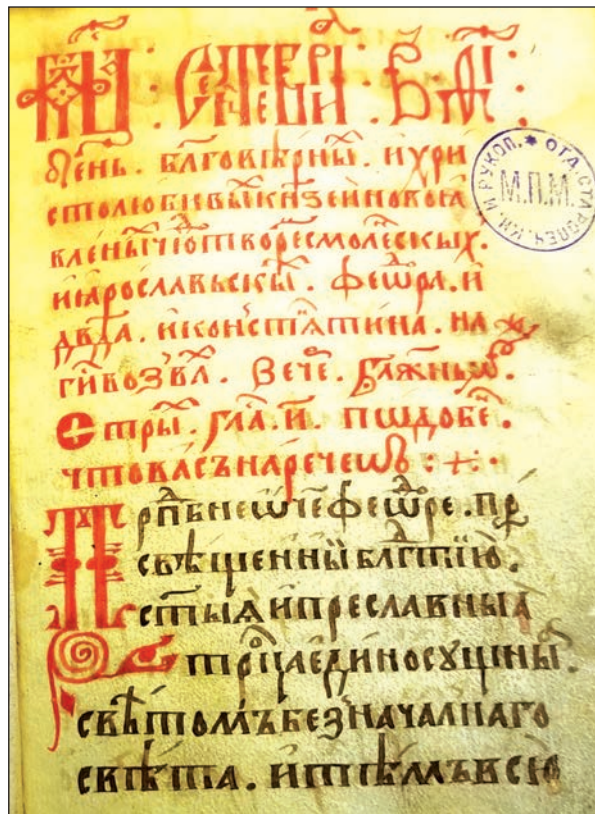 М҃ЦА : СЕТЕВРІ : В҃І :
д҃ень . бл҃говѣрны̆х . ихри
столюбивы̆х кн҃зеи новоꙗ
вленыхчю̆дотворӗсмолӗскых.
иꙗрославьскы̆х . феѡ̆ра . и
дв҃да . иконъстѧтина . на
г҃и возв҃а . вечӗ . бл҃жнъмꙋ̆.
Стры̆ . глӑ . и҃ . пѡдобӗн .
что васънаречеѡв : +:·
Прⷣпбнеѡ҃че феѡ̆ре . пр
свѣщенныи бл҃гтїю .
ст҃ыꙗ ипреславныꙗ
троцаединосущны̆ .
свѣтомъбезначалнаго
свѣта . итѣмъвсю
ОТД. СТАРОПЕЧ. КН. И РУКОП. *
М.П.М.